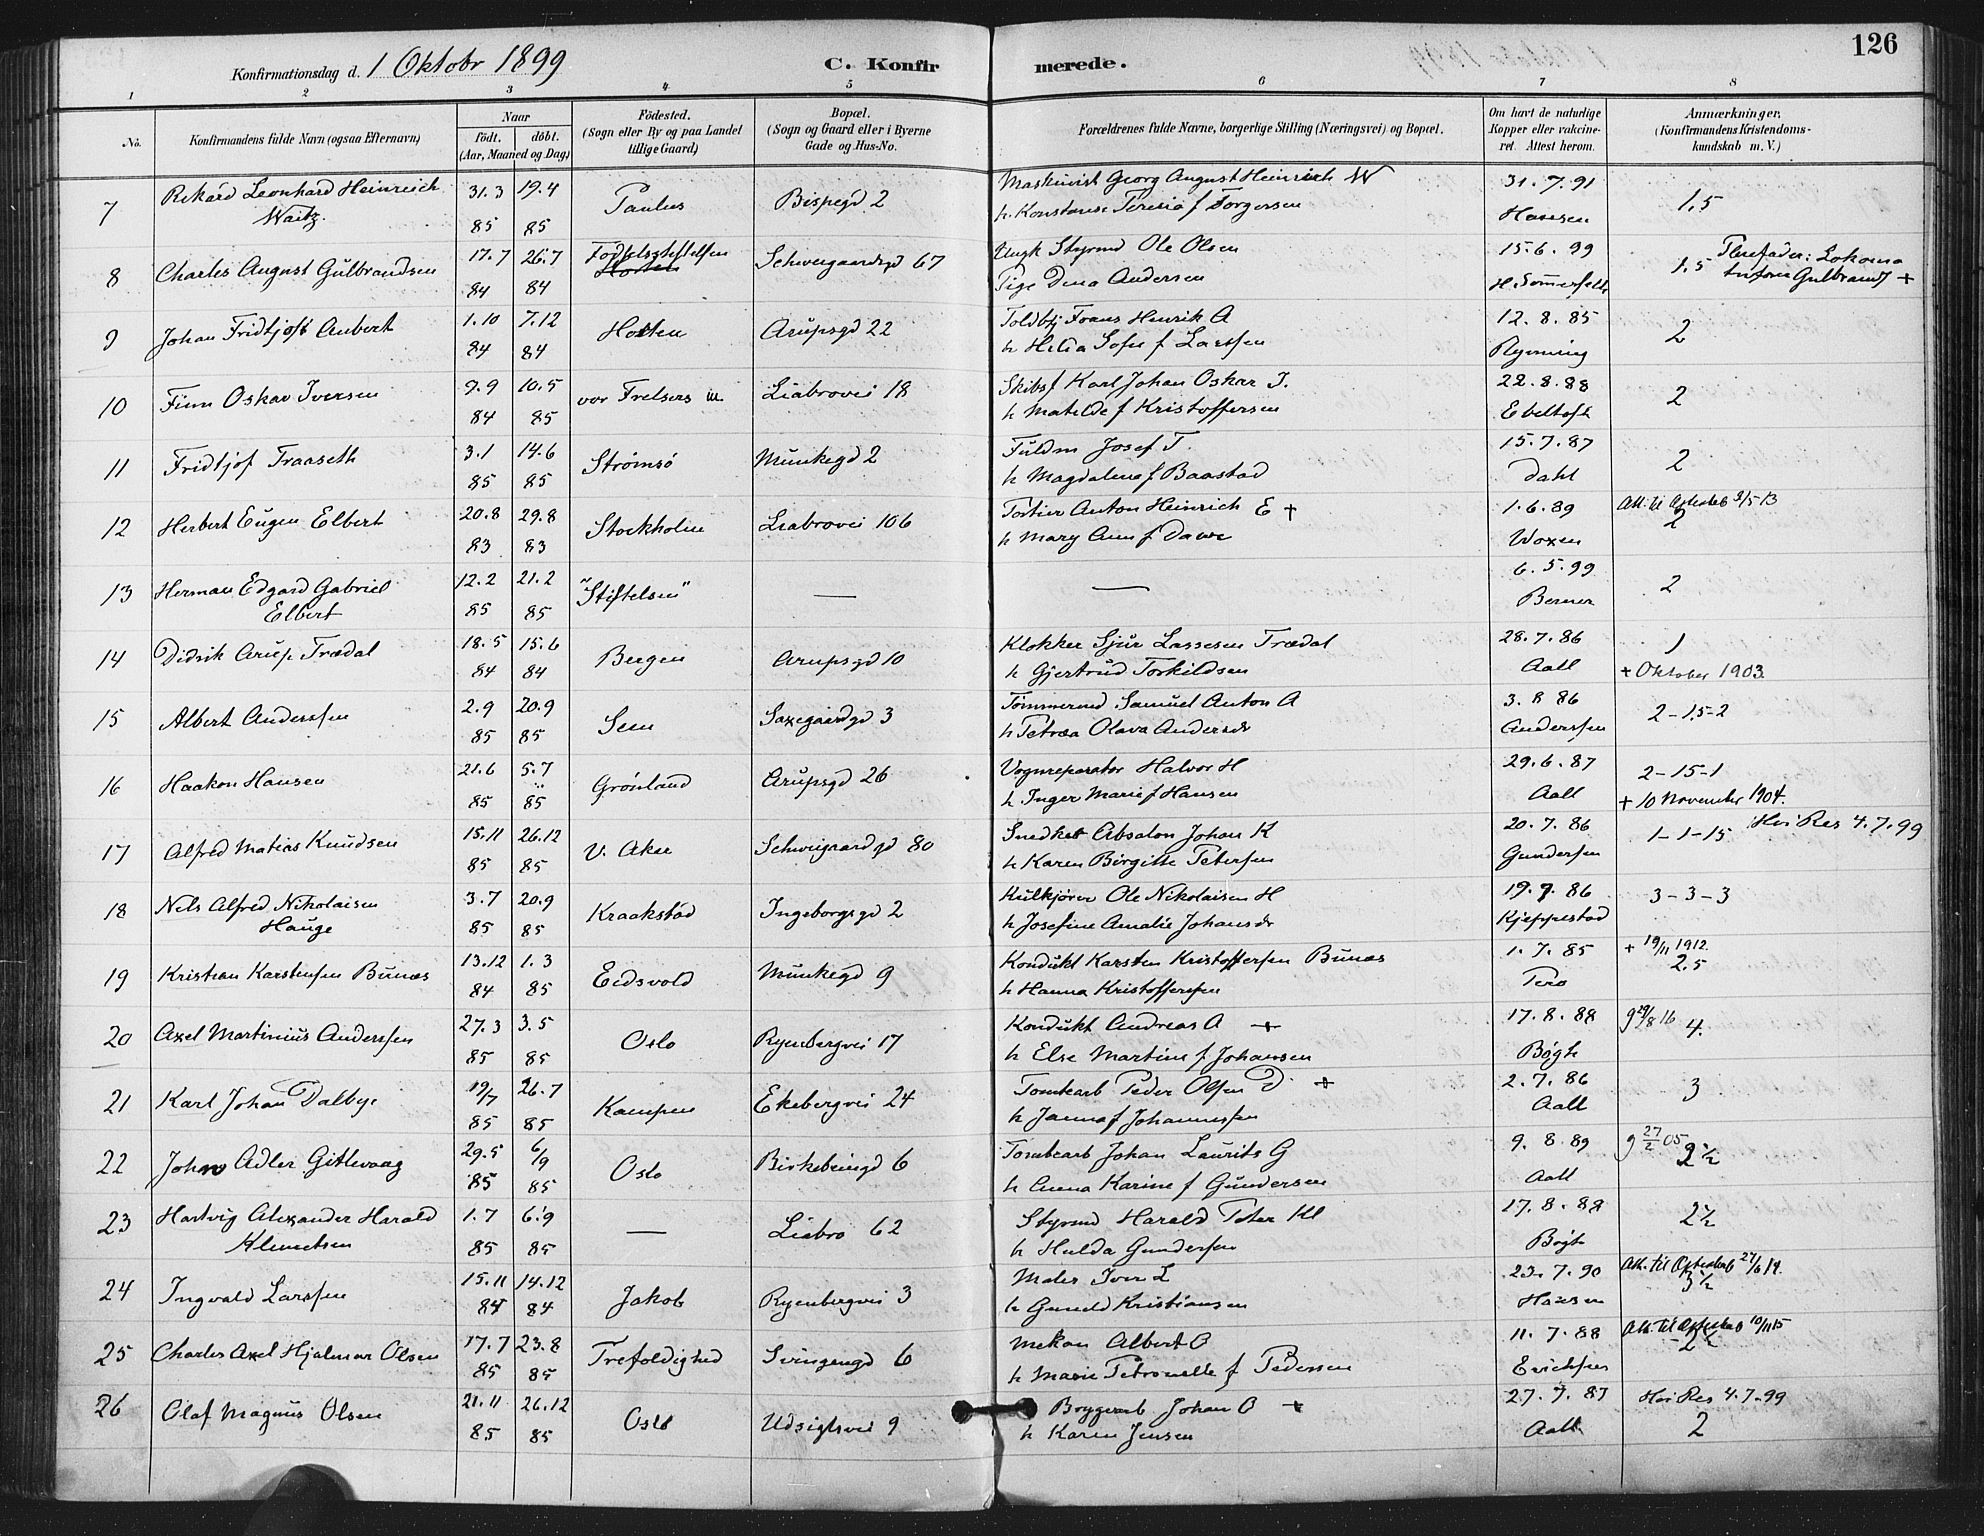 126
Konfirmationsdag d. 1 Oktobr 1899 C. Konfirmerede.
1 2 3 4 5 6 7 8
No. Konfirmandens fulde Navn (ogsaa Efternavn) Naar født. døbt. (Aar, Maaned og Dag) Fødested. (Sogn eller By og paa Landet tillige Gaard) Bopæl. (Sogn og Gaard eller i Byerne Gade og Hus-No. Forældrenes fulde Navne, borgerlige Stilling (Næringsvei) og Bopæl. Om havt de naturlige Kopper eller vakcineret. Attest herom. Anmærkninger. (Konfirmandens Kristendomskundskab m. V.)
7 Rikard Leonhard Heinrich 31.3 19.4 Paulus Bispegd 2 Maskinist Georg August Heinrich W 31.7.91 1,5
Waitz. 85 85 h. Konstanse Teresia f Torgersen Hansen
8 Charles August Gulbrandsen 17.7 26.7 Fødselsstiftelsen Schweigaardsgd 67 Ungk Styrmd Ole Olsen 15.6.99 1,5 Plejefader: Lokomo
84 84 Pige Dina Andersen H. Sommerfelt Gulbrands +
9 Johan Fridtjof Aubert 1.10 7.12 Horten Arupsgd 22 Toldbtj Frans Henrik A 12.8.85 2
84 84 h Helia Sofie f Larssen Rynning
10 Finn Oskar Iversen 9.9 10.5 vor Frelsers m Liabrovei 18 Skibsf Karl Johan Oskar I. 22.8.88 2
84 85 h Matilde f Kristoffersen Ebeltoft
11 Fridtjof Traaseth 3.1 14.6 Strømsø Munkegd 2 Fuldm Josef T. 15.7.87 2
85 85 h Magdalena f Baastad Dahl
12 Herbert Eugen Elbert 20.8 29.8 Stockholm Liabrovei 106 Portier Anton Heinrich E + 1.6.89 Att. til 3/5 13
83 83 h Mary Ann f Dawe Woxen 2
13 Herman Edgard Gabriel 12.2 21.2 "Stiftelsen" — — 6.5.99 2
Elbert 85 85 Berner
14 Didrik Arup Trædal 18.5 15.6 Bergen Arupsgd 10 Klokker Sjur Lassesen Trædal 28.7.86 1
84 84 h Gjertrud Torkildsen Aall + Oktober 1903.
15 Albert Anderssen 2.9 20.9 Sem Saxegaardgd 3 Tømmermd Samuel Anton A 3.8 86 2-1,5-2
85 85 h Petræa Olava Andersdr Anderssen
16 Haakon Hansen 21.6 5.7 Grønland Arupsgd 26 Vognreparatør Halvor H 29.6.87 2-15-1
85 85 h Inger Marie f Hansen Aall + 10 November 1904.
17 Alfred Matias Knudsen 15.11 26.12 V. Aker Schweigaardgd 80 Snedker Absalon Johan K 20.7.86 1-1-15 Res 4.7.99
85 85 h Karen Birgitte Petersen Gundersen
18 Nils Alfred Nikolaisen 3.7 20.9 Kraakstad Ingeborgsgd 2 Kulkjører Ole Nikolaisen H 19.7.86 3-3-3
Hauge 85 85 h Josefine Amalie Johansdr Kjeppestad
19 Kristian Karstensen Bunæs 13.12 1.3 Eidsvold Munkegd 9 Kondukt Karsten Kristoffersen Bunæs 1.7.85 + 19/11 1912.
84 85 h Hanna Kristoffersen 2.5
20 Axel Martinius Anderssen 27.3 3.5 Oslo Ryenbergvei 17 Kondukt Andreas A + 17.8.88 g 29/8 16 4.
85 85 h Else Martine f Johansen Bøgh
21 Karl Johan Dalbye 19/7 26.7 Kampen Ekebergvei 24 Tomtearb Peder Olsen D. + 2.7.86 3
85 85 h Janna f Johannessen Aall
22 John Adler Gitlevaag 29.5 6/9 Oslo Birkebeingd 6 Tomtearb Johan Laurits G 9.8.89 g 27/2 05 2½
85 85 h Anna Karine f Gundersen Aall
23 Hartvig Alexander Harald 1.7 6.9 — Liabro 62 Styrmd Harald Peter Kl 17.8.88 2½
Klemetsen 85 85 h Hulda Gundersen Bøgh
24 Ingvald Larssen 15.11 14.12 Jakob Ryenbergvei 3 Maler Iver L 23.7.90 Att. til
84 84 h Gunild Kristiansen Hansen 3½
25 Charles Axel Hjalmar Olsen 17.7 23.8 Trefoldighed Svingengd 6 Mekan Albert O 11.7.88 Att. til 10/11 15
85 85 h Marie Petronelle f Pedersen Erichsen 2½
26 Olaf Magnus Olsen 21.11 26.12 Oslo Udsigtsvei 9 Bryggearb Johan O + 27.7.87 Res 4.7.99
85 85 h Karen Jensen Aall 2